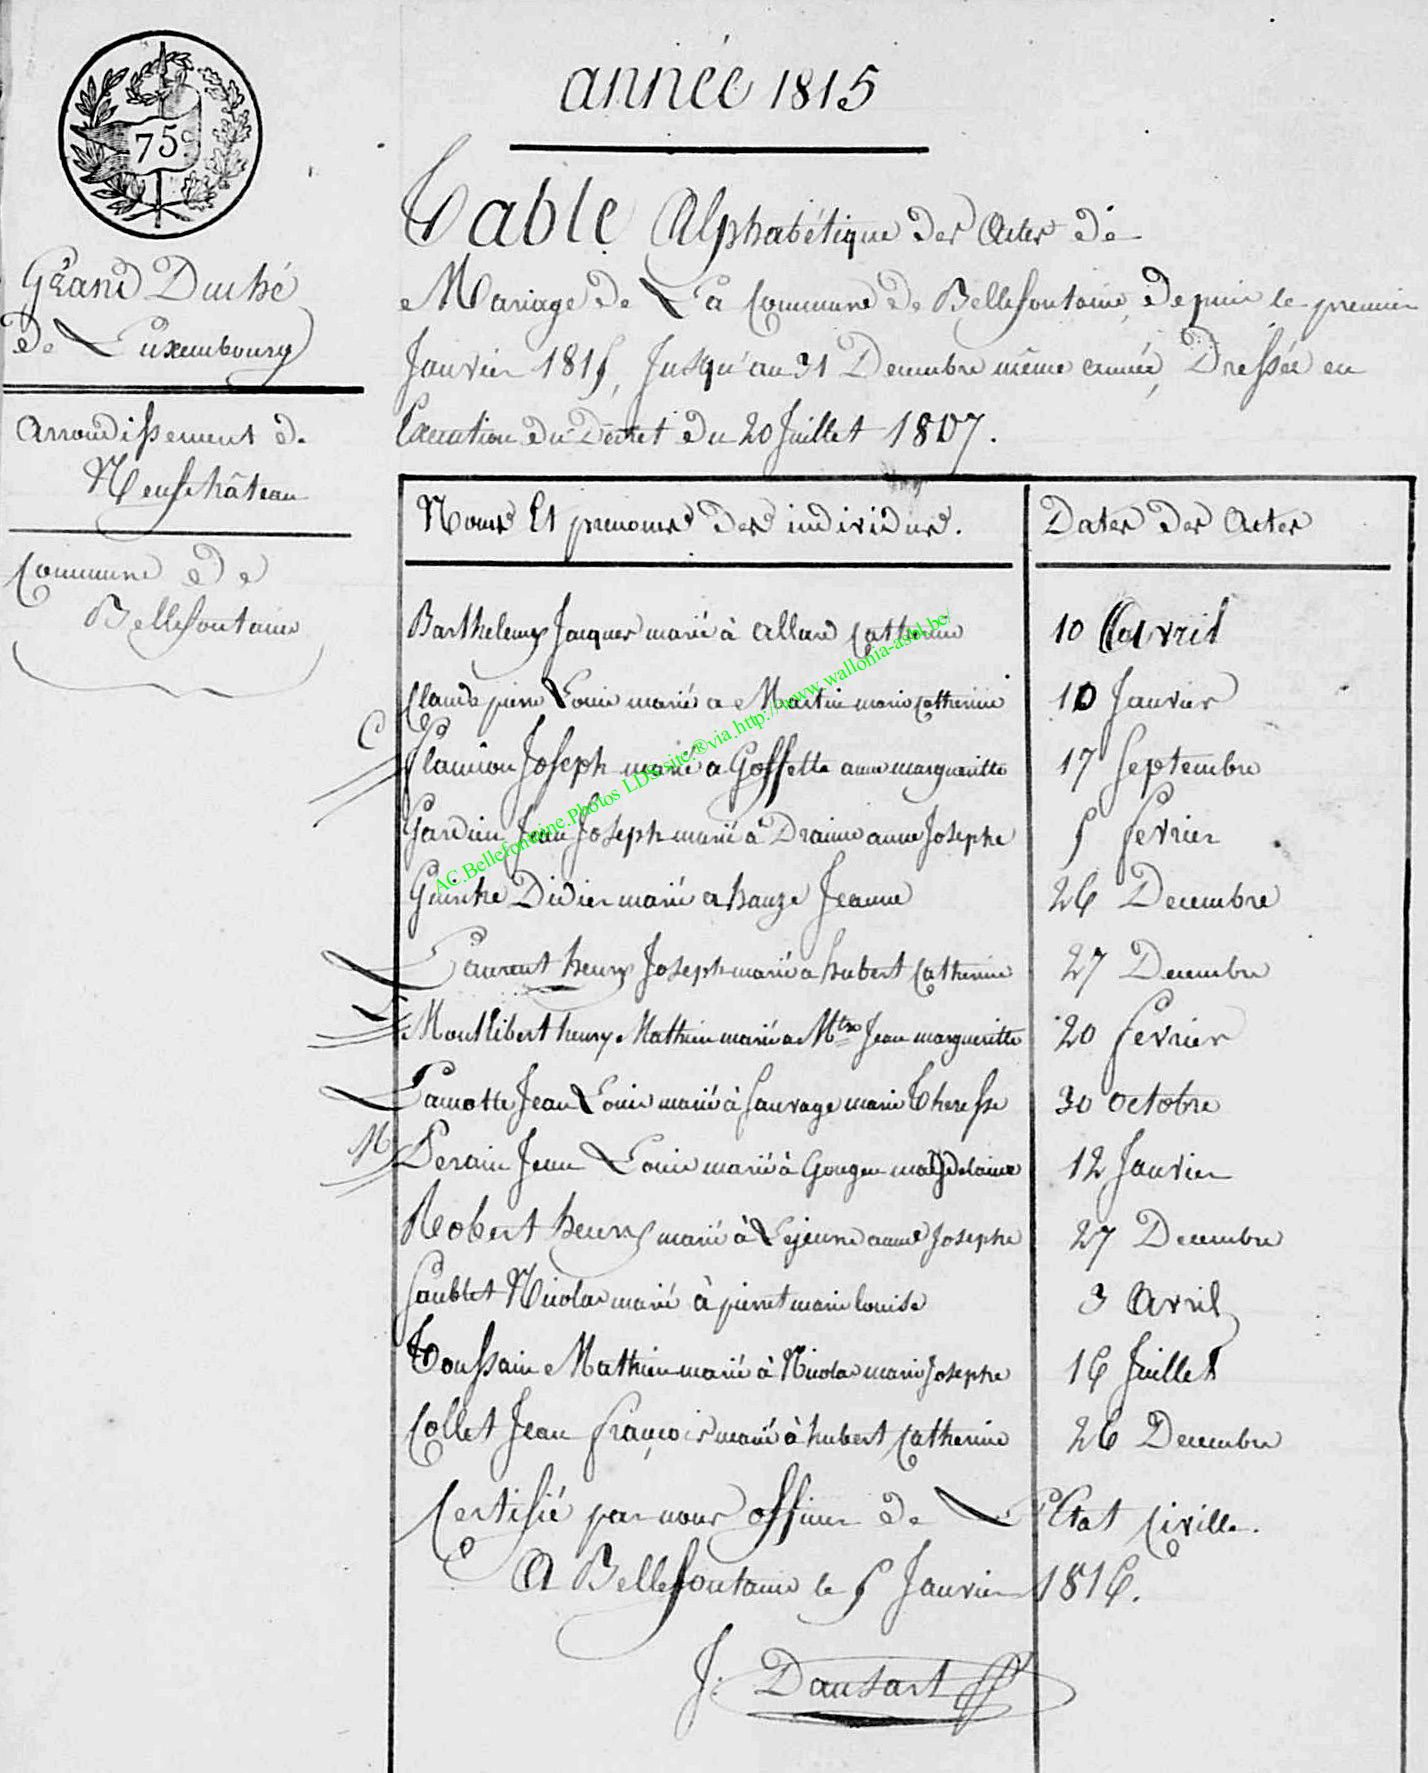 année 1815
75c
Grand Duché
de Luxembourg
Arrondissement de
Neufchâteau
Commune de
Bellefontaine
Table Alphabétique des Actes de
Mariage de La Commune de Bellefontaine, depuis le premier
Janvier 1815, Jusqu'au 31 Decembre même année, Dressée en
Execution du Décret du 20 Juillet 1807.
Noms Et prenoms des individus. Dates des Actes
Barthelemy Jacques marié à Allard Catherine 10 Avril
Claude pierre Louis marié a Martin marie Catherine 10 Janvier
C
Flamion Joseph marié a Goffette anne margueritte 17 Septembre
Gardien Jean Joseph marié à Draime anne Josephe 5 fevrier
Didier marié a hanze Jeanne 26 Decembre
Laurent henry Joseph marié a hubert Catherine 27 Decembre
Montlibert henry Mathieu marié a Jean margueritte 20 fevrier
Lamotte Jean Louis marié à Sauvage marie Theresse 30 octobre
Perain Jean Louis marié à Gouget magdelaine 12 Janvier
Robert henry marié à Lejeune anne Josephe 27 Decembre
Saublet Nicolas marié à pierret marie louise 3 Avril
Toussain Mathieu marié à Nicolas marie Josephe 16 Juillet
Collet Jean françois marié à hubert Catherine 26 Decembre
Certifié par nous officier de L'Etat Civille.
A Bellefontaine le 5 Janvier 1816.
J. Dausart
AC.Bellefontaine.Photos LDS-site.®via.http://www.wallonia-asbl.be/